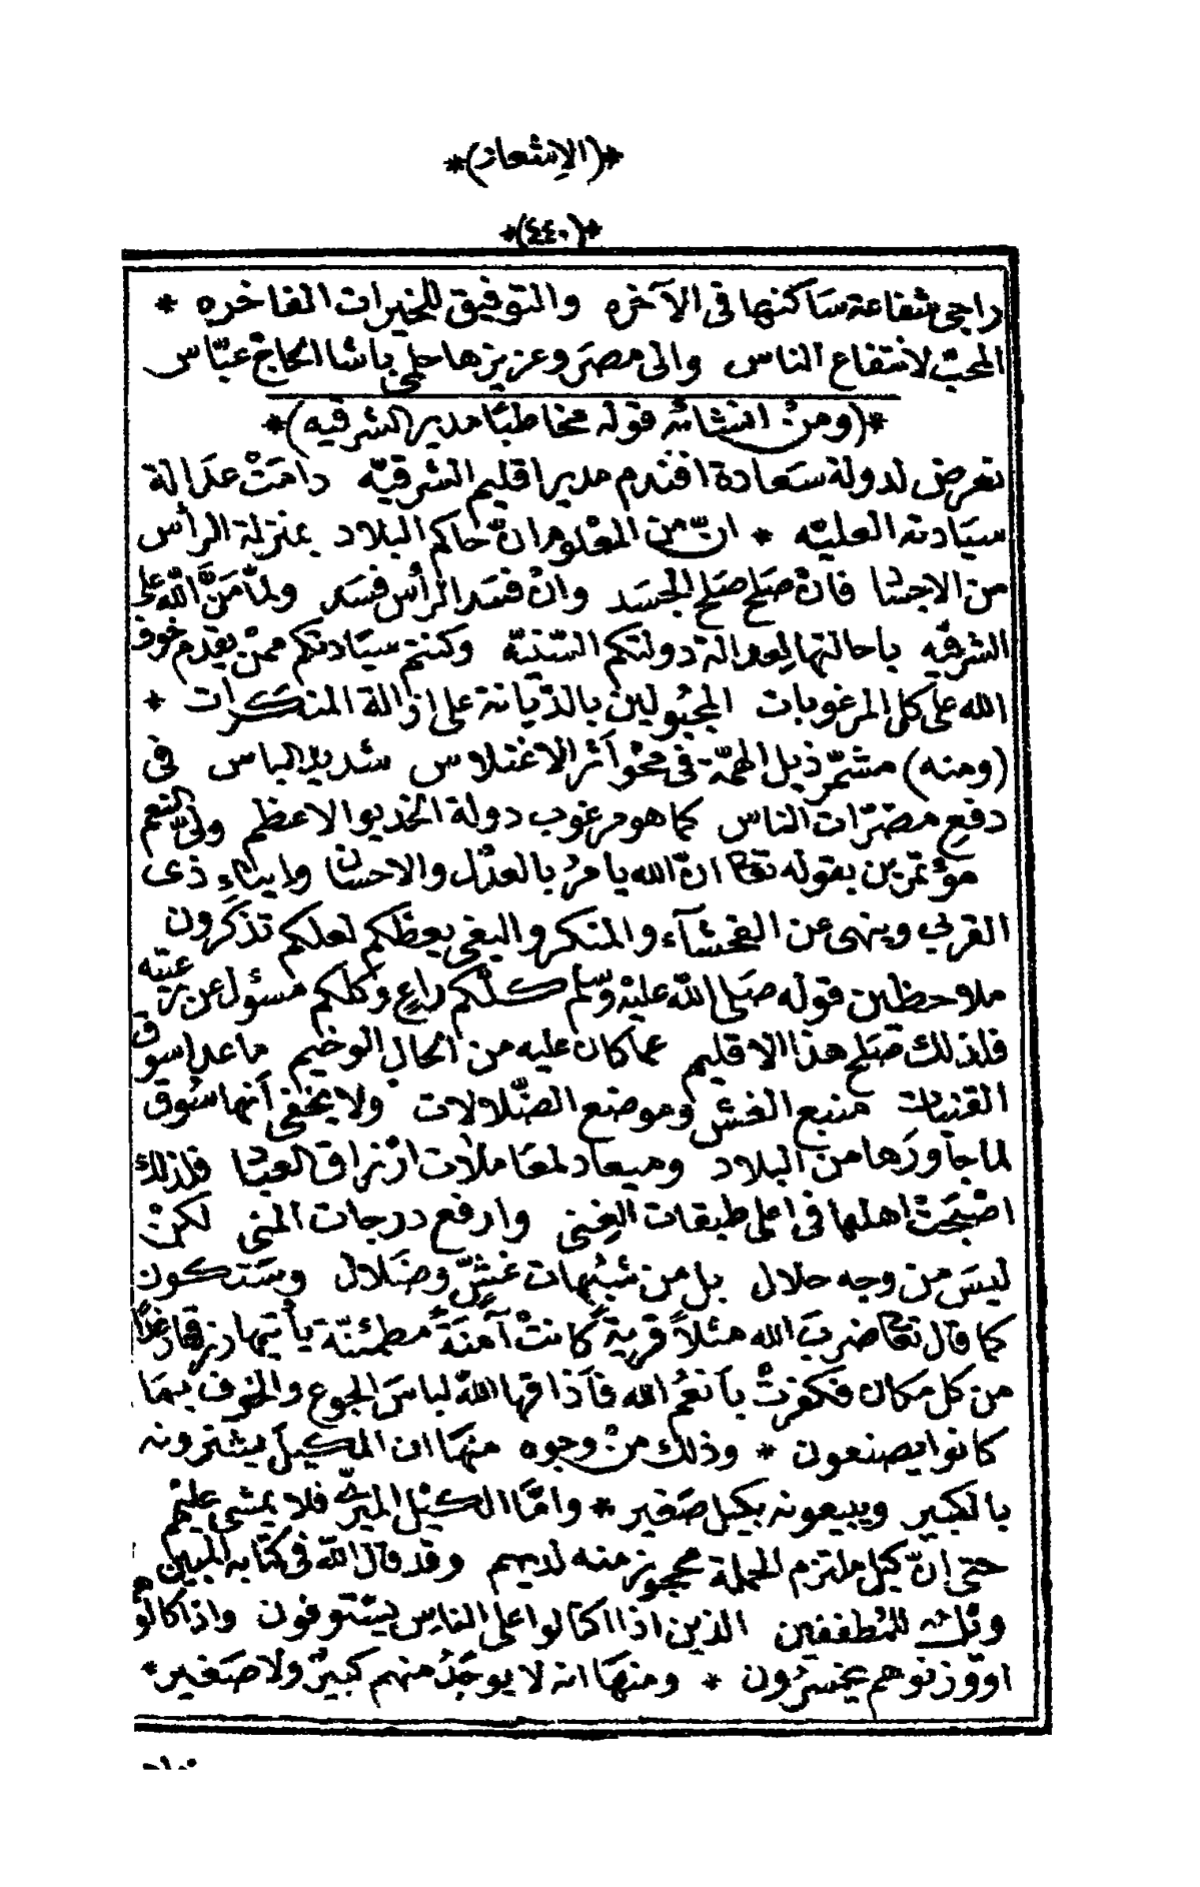 *(الاشعار)*
*(٤٤٠)*
راجى شفاعة سَاكنها فى الآخره والتوفيق للخيرات الفاخره *
المحبّ لانتفاع الناس والى مصرَ وعزيزها حلمى باشا الحاج عبّاس
*(ومنْ انشائه قوله مخاطبًا مدير الشرقيه)*
نعرض لدولة سَعادة افندم مدير اقليم الشرقيّه دامَتْ عدَالة
سيَادته العليّه * انّ من المعْلوم انّ حاكم البلاد بمنزلة الرأس
من الاجسَا فانْ صَلح صَلح الجسَد وانْ فسَد الرأس فسَد ولمّا مَنَّ اللّه على
الشرقيّه باحالتها لعدالة دولتكم السّنيّه وكنتم سيَادتكم ممنْ يقدم خوف
الله على كل المرغوبات المجبُولين بالدّيانة على ازالة المنكَرات *
(ومنه) مشمّر ذيل الهمّة فى محْو أثر الاختلاس شديد الباس فى
دفع مضرّات الناس كما هو مرغوب دولة الخديو الاعظم ولىّ النعم
مؤتمرين بقوله تعا انّ الله يامرُ بالعدْل والاحسان وايتاءِ ذى
القربى وينهى عن الفحشآء والمنكر والبغى يعظكم لعلكم تذكّرون
ملاحظين قوله صَلى اللّه عليْه وسَلم كلّكم راعٍ وكلكم مسئول عن رعيّته
فلذلك صَلح هذا الاقليم عما كان عليه من الحال الوخيم ما عدا سوق
القنيات منبع الغش وموضع الضّلالات ولا يخفى أنها سُوق
لما جاورَها من البلاد وميعاد لمعَاملات ارْزاق العبَا فلذلك
اصْبَحَتْ اهلها فى اعلى طبقات الغِنى وارفع درجات المنى لكنْ
ليسَ من وجه حلال بل من شبُهات غشّ وضَلال وسَتكون
كما قال تعا ضربَ الله مثلاً قريةً كانتْ آمنَةً مطمئنّة يأتيها رزقها رغدًا
من كل مكان فكفرَتْ بأنعُم الله فأذاقها اللّه لباسَ الجوع والخوف بمَا
كانوا يصنعون * وذلك منْ وجوه منهَا ان المكيلَ يشترونه
بالكبير ويبيعونه بكيل صَغير * وامّا الكيْل الميرى فلا يمشى عليْهم
حتى انّ كيل ملتزم الحملة محجوز منه لديهم وقد قال اللّه فى كتابه المبين
ويْل للمُطففين الذين اذا اكتالوا على الناسِ يسْتوفون واذا كالُوهُم
اووّزنوهم يخسرُون * ومنهَا انه لا يوجَدُ منهم كبيرٌ ولا صَغير *